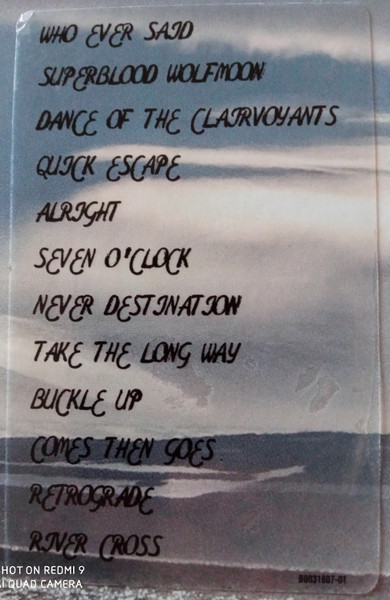 WHO EVER SAID
SUPERBLOOD WOLFMOON
DANCE OF THE CLAIRVOYANTS
QUICK ESCAPE
ALRIGHT
SEVEN O'CLOCK
NEVER DESTINATION
TAKE THE LONG WAY
BUCKLE UP
COMES THEN GOES
RETROGRADE
RIVER CROSS
B0031807-01
HOT ON REDMI 9
I QUAD CAMERA